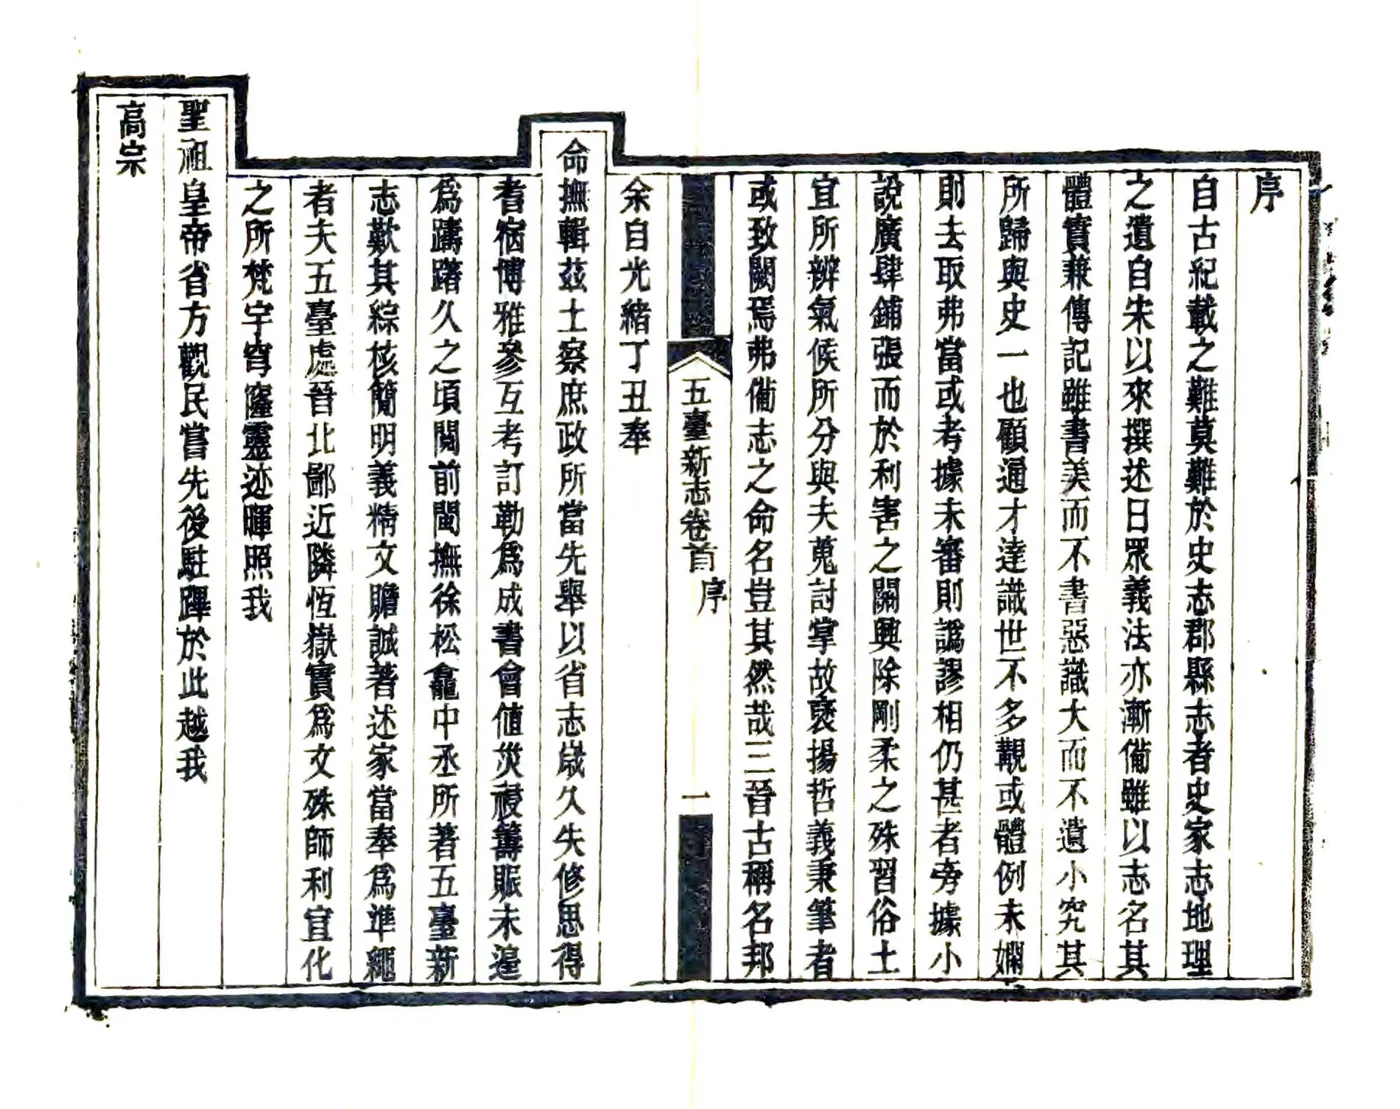 序
自古紀載之難莫難於史志郡縣志者史家志地理
之遺自宋以來撰述日眾義法亦漸備雖以志名其
體實兼傳記雖書美而不書惡識大而不遺小究其
所歸與史一也顧通才達識世不多覯或體例未嫻
則去取弗當或考據未審則譌謬相仍甚者旁據小
說廣肆鋪張而於利害之關興除剛柔之殊習俗土
宜所辨氣候所分與夫蒐討掌故褒揚哲義秉筆者
或致闕焉弗備志之命名豈其然哉三晉古稱名邦
五臺新志卷首 序 一
余自光緒丁丑奉
命撫輯茲土察庶政所當先舉以省志歲久失修思得
耆宿博雅參互考訂勒為成書會值災祲籌賑未遑
為躊躇久之頃閱前閩撫徐松龕中丞所著五臺新
志歎其綜核簡明義精文贍誠著述家當奉為準繩
者夫五臺處晉北鄙近隣恆嶽實為文殊師利宣化
之所梵宇穹窿靈迹暉照我
聖祖皇帝省方觀民嘗先後駐蹕於此越我
高宗